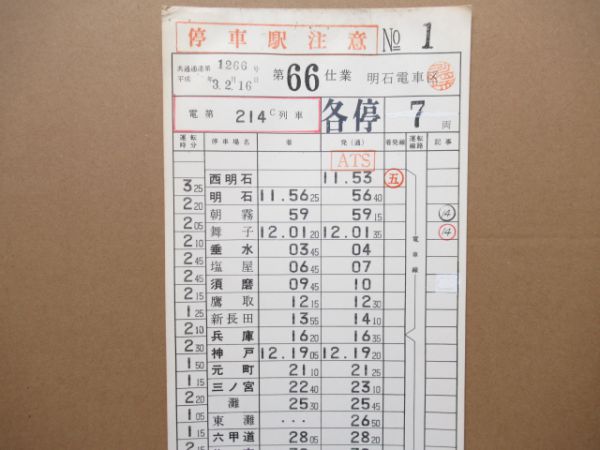 停車駅注意 № 1
共通通達第 1266 号
平成 年 3. 2. 16 日
第 66 仕業 明石電車区
電第 214C 列車 各停 7 両
運転時分 停車場名 着 発(通) 着発線 運転線路 記事
ATS
西明石 11.53 五
3 25 明石 11.56 25 56 40
2 20 朝霧 59 59 15 14
2 05 舞子 12.01 20 12.01 35 14
2 10 垂水 03 45 04 電車線
2 45 塩屋 06 45 07
2 45 須磨 09 45 10
2 15 鷹取 12 15 12 30
1 25 新長田 13 55 14 10
2 10 兵庫 16 20 16 35
2 30 神戸 12.19 05 12.19 20
1 50 元町 21 10 21 25
1 15 三ノ宮 22 40 23 10
2 20 灘 25 30 25 45
1 05 東灘 ... 26 50
1 15 六甲道 28 05 28 20